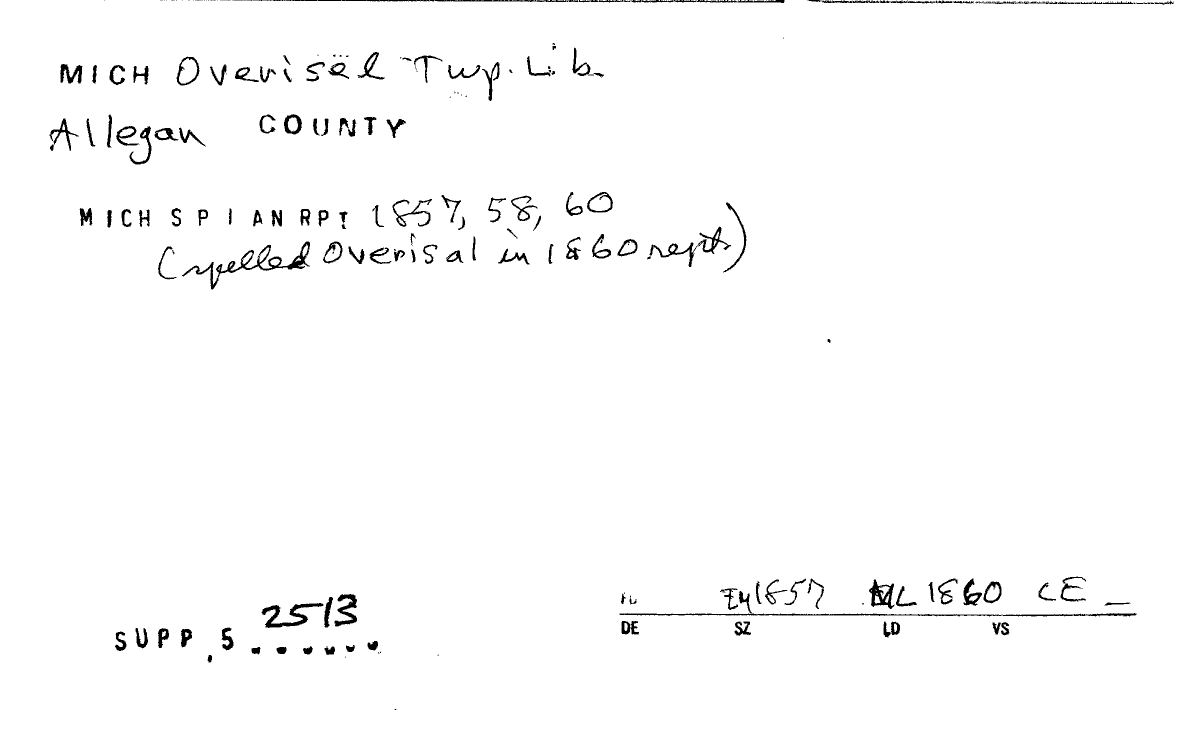 MICH Overisël Twp. Lib.
Allegan COUNTY
MICH S P I AN RPT 1857, 58, 60
(spelled Overisal in 1860 rept.)
SUPP. 5 2513
1857 ML 1860 CE _
DE SZ LD VS